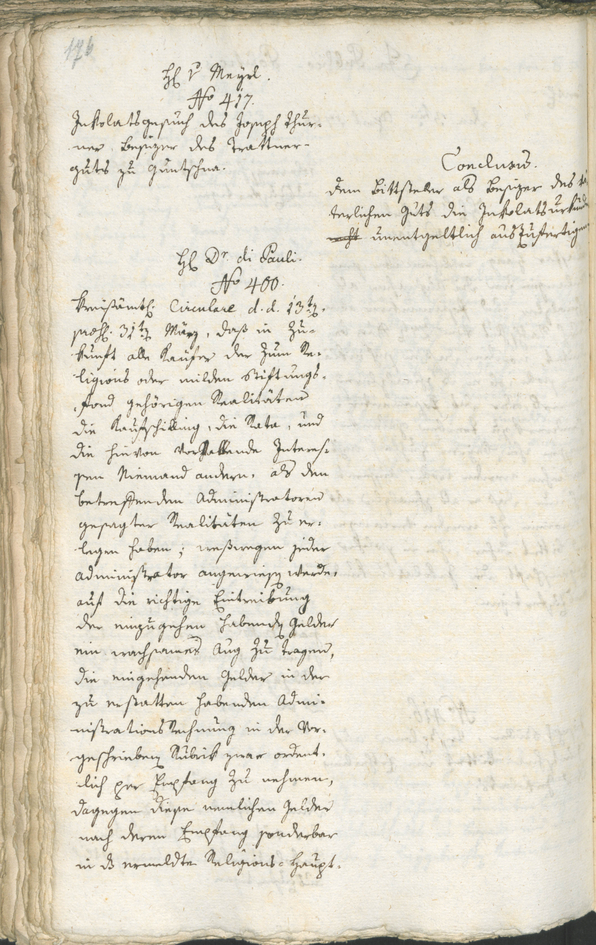 176
H. v Meyrl.
No 417.
Inkolatsgesuch des Joseph Thur-
ner Besizer des Trattner-
guts zu Guntschna.
Conclusum.
dem Bittsteller als Besizer des
terlichen Guts die Inkolatsurkunde
unentgeltlich auszufertigen
H. Dr. di Pauli.
No 400.
Kreisämtl. Circulare d. d. 13ten
praes. 31ten März, daß in Zu-
kunft alle Kaufer der zum Re-
ligions oder milden Stiftungs-
fond gehörigen Realitäten
die Kaufschilling, die Rata, und
die hievon vorfallende Interes-
sen Niemand andern, als den
betreffenden Administratoren
gesagter Realitäten zu er-
legen haben; weßwegen jeder
Administrator angewiesen werde,
auf die richtige Eintreibung
der einzugehen habenden Gelder
ein wachsames Aug zu tragen,
die eingehenden Gelder in der
zu erstatten habenden Admi-
nistrationsRechnung in der vor-
geschriebenen Rubrik zwar ordent-
lich per Empfang zu nehmen,
dagegen diese nemlichen Gelder
nach deren Empfang sonderbar
in das ermeldte Religions-Haupt-